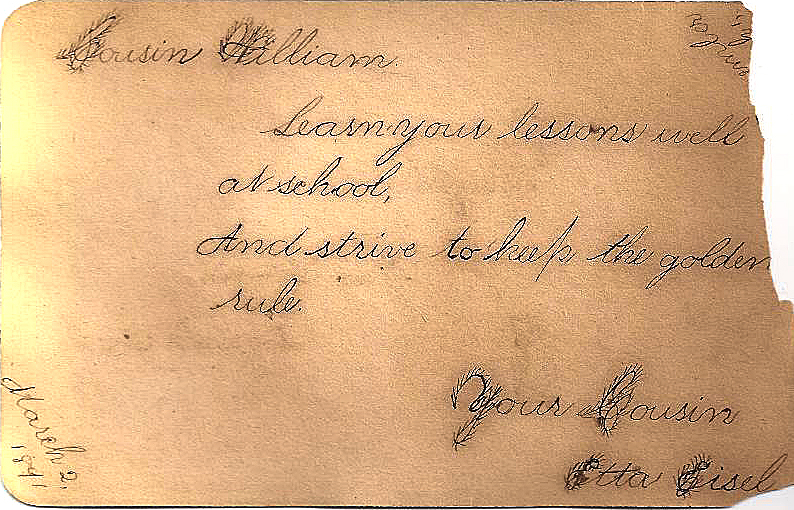 Cousin William
Learn your lessons well
at school,
And strive to keep the golden
rule.
Your Cousin
Etta Eisel
March 2,
1891